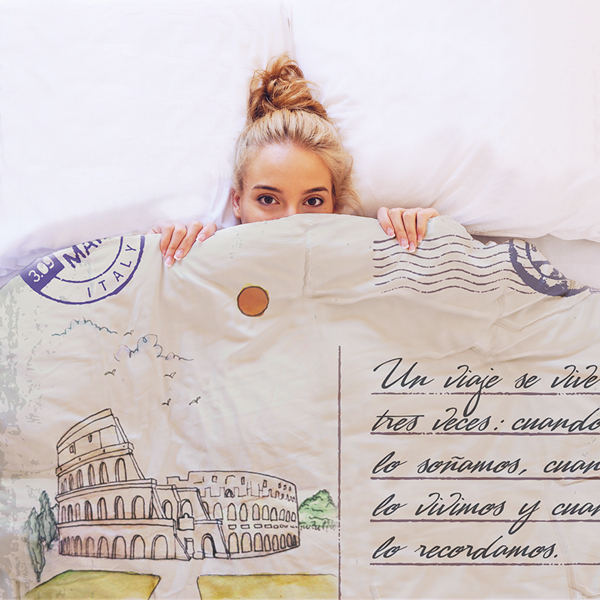 309 MAR
ITALY
Un viaje se vive
tres veces: cuando
lo soñamos, cuan
lo vivimos y cuan
lo recordamos.